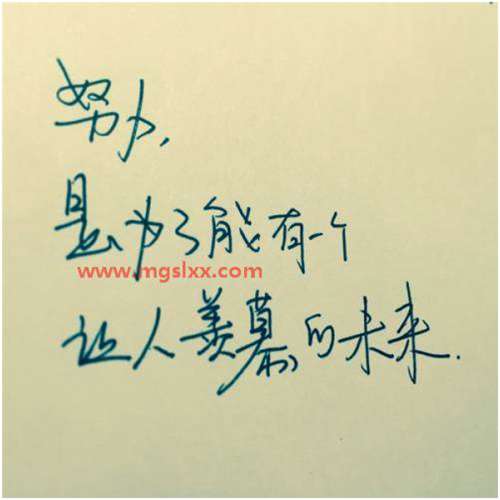 努力,
是为了能有一个
www.mgslxx.com
让人羡慕的未来.